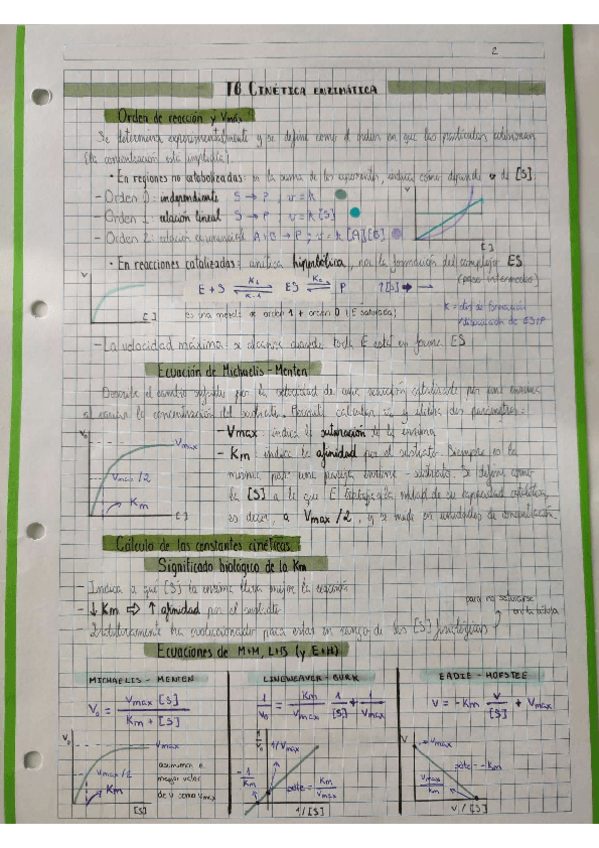 2
T6 CINÉTICA ENZIMÁTICA
Orden de reacción y Vmáx
Se determina experimentalmente y se define como el orden en que las partículas
(la concentración está implícita).
• En regiones no catalizadas: es la suma de los exponentes, indica cómo depende v de [S].
- Orden 0: independiente S → P ; v = k
- Orden 1: relación lineal S → P ; v = k [S]
- Orden 2: relación A + B → P ; v = k [A][B]
v
[ ]
• En reacciones catalizadas: cinética hiperbólica, por la formación del complejo ES
(paso intermedio)
v
[ ]
E + S K1 K-1 ES K2 P
↑[S] →
K = de formación
/disociación de ES/P
(es una mezcla de orden 1 + orden 0 (E saturada)
- La velocidad máxima se alcanza cuando toda E está en forma ES
Ecuación de Michaelis - Menten
Describe el cambio sufrido por la velocidad de una reacción catalizada por una enzima
al variar la concentración del sustrato. Permite calcular v y utiliza dos parámetros:
V0
Vmax
Vmax/2
Km
[ ]
- Vmax: indica la saturación de la enzima
- Km: indica la afinidad por el sustrato. Siempre es la
misma para una pareja enzima - sustrato. Se define como
la [S] a la que E trabaja a la mitad de su capacidad catalítica,
es decir, a Vmax/2, y se mide en unidades de concentración.
Cálculo de las constantes cinéticas
Significado biológico de la Km
- Indica a qué [S] la enzima lleva mejor la reacción
- ↓ Km ⇒ ↑ afinidad por el sustrato
- ha evolucionado para estar en rango de las [S] fisiológicas
para no saturarse
en la célula
Ecuaciones de M+M, L+B (y E+H)
MICHAELIS - MENTEN
V0 = Vmax [S] / Km + [S]
V0
Vmax
Vmax/2
Km
[S]
asumimos el
mayor valor
de v como Vmax
LINEWEAVER - BURK
1/V0 = Km/Vmax 1/[S] + 1/Vmax
1/V0
1/Vmax
-1/Km
pdte = Km/Vmax
1/[S]
EADIE - HOFSTEE
V = -Km V/[S] + Vmax
V
Vmax
pdte = -Km
Vmax/Km
V/[S]